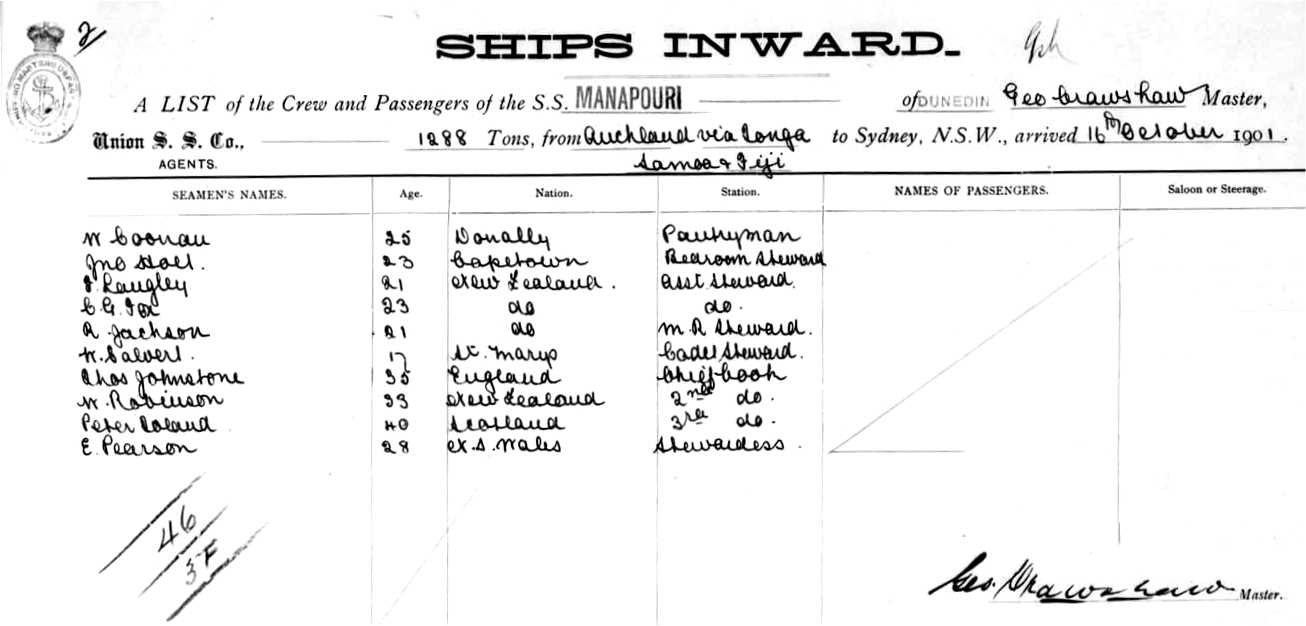 2
SHIPS INWARD.
A LIST of the Crew and Passengers of the S.S. MANAPOURI of DUNEDIN Geo Crawshaw Master,
Union S. S. Co., 1288 Tons, from Auckland via Tonga to Sydney, N.S.W., arrived 16th October 1901.
AGENTS. Samoa & Fiji
SEAMEN'S NAMES. Age. Nation. Station. NAMES OF PASSENGERS. Saloon or Steerage.
W Coonan 25 Pantryman
Jno Holt. 23 Capetown Bedroom Steward
Langley 21 New Zealand. Asst Steward.
C. G. Fox 23 do do.
R. Jackson 21 do M. R Steward.
17 St. Marys Steward.
Chas Johnstone 35 England Chief Cook
W. Robinson 33 New Zealand 2nd do.
Peter 40 Scotland 3rd do.
E. Pearson 28 N. S. Wales Stewardess.
46
3F
Geo. Crawshaw Master.